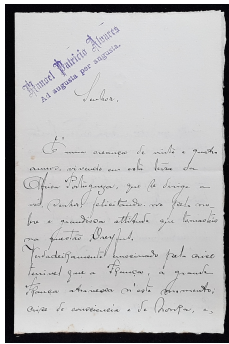 Manuel Patricio Alvares
Ad augusta per augusta.
Senhor,
É uma creança de vinte e quatro
annos, vivendo em esta terra da
Africa Portugueza, que se dirige a
vós, Senhor, felicitando-vos pela no-
bre e grandiosa attitude que tomastes
na questão Dreyfus.
pela crise
terrivel que a França, a grande
França atravessa n'este momento,
crise de consciencia e de honra, e,